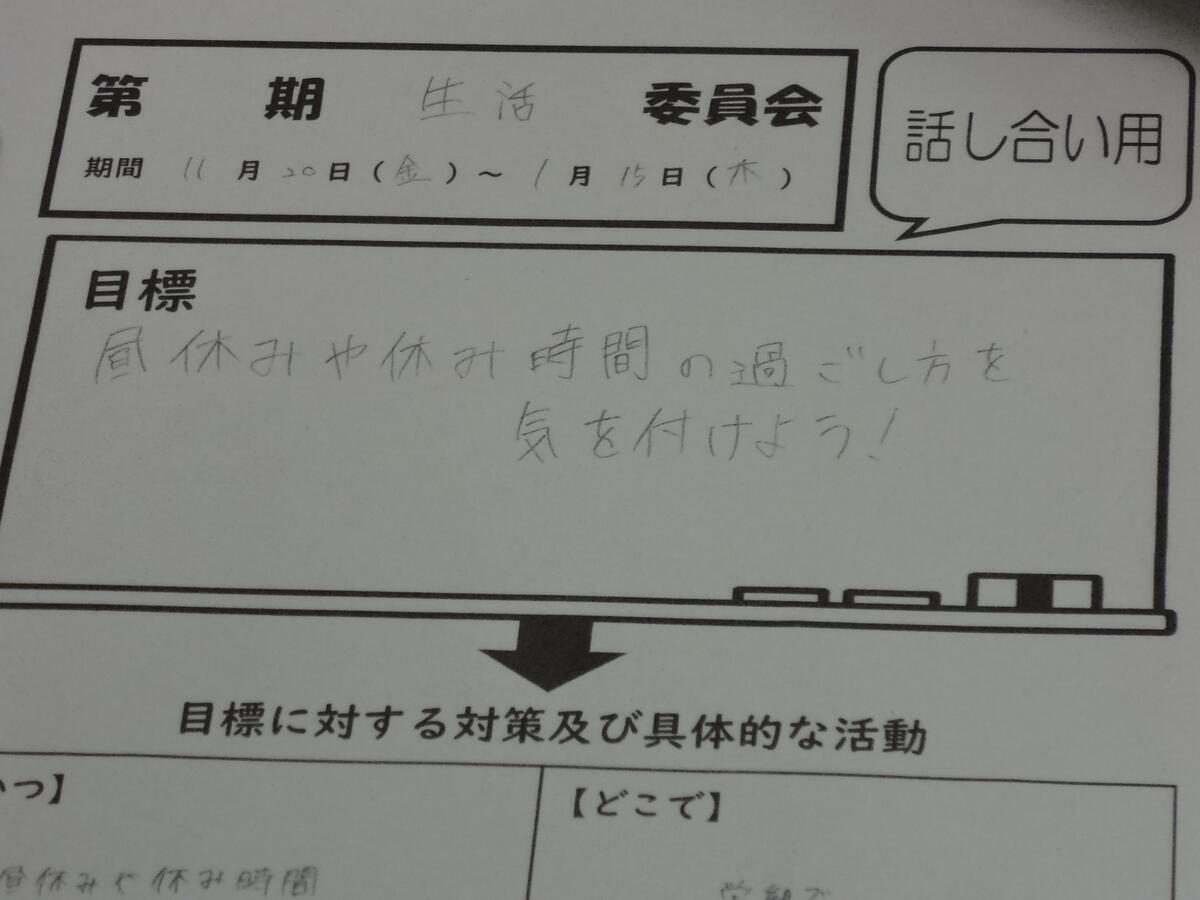 第 期 生活 委員会
期間 11月20日(金)～1月15日(木)
話し合い用
目標
昼休みや休み時間の過ごし方を
気を付けよう!
目標に対する対策及び具体的な活動
いつ】
【どこで】
昼休みや休み時間
学級で